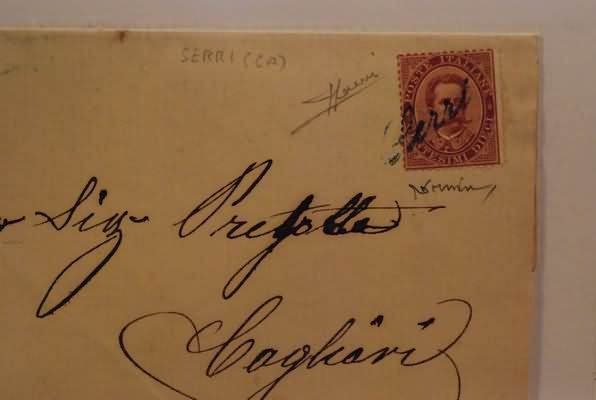 SERRI (CA)
POSTE ITALIANE
Serri
CENTESIMI DIECI
Sig Prefetto
Cagliari